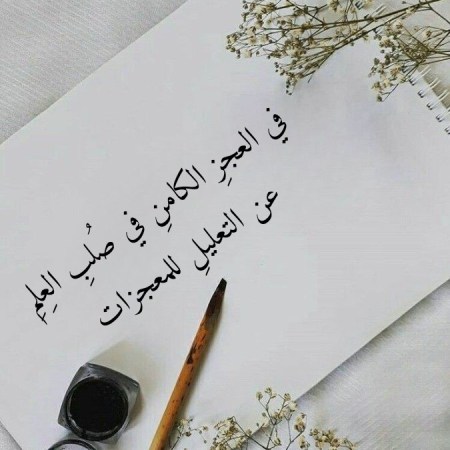 في العجزِ الكامنِ في صُلبِ العلِمِ
عن التعليلِ للمعجزات